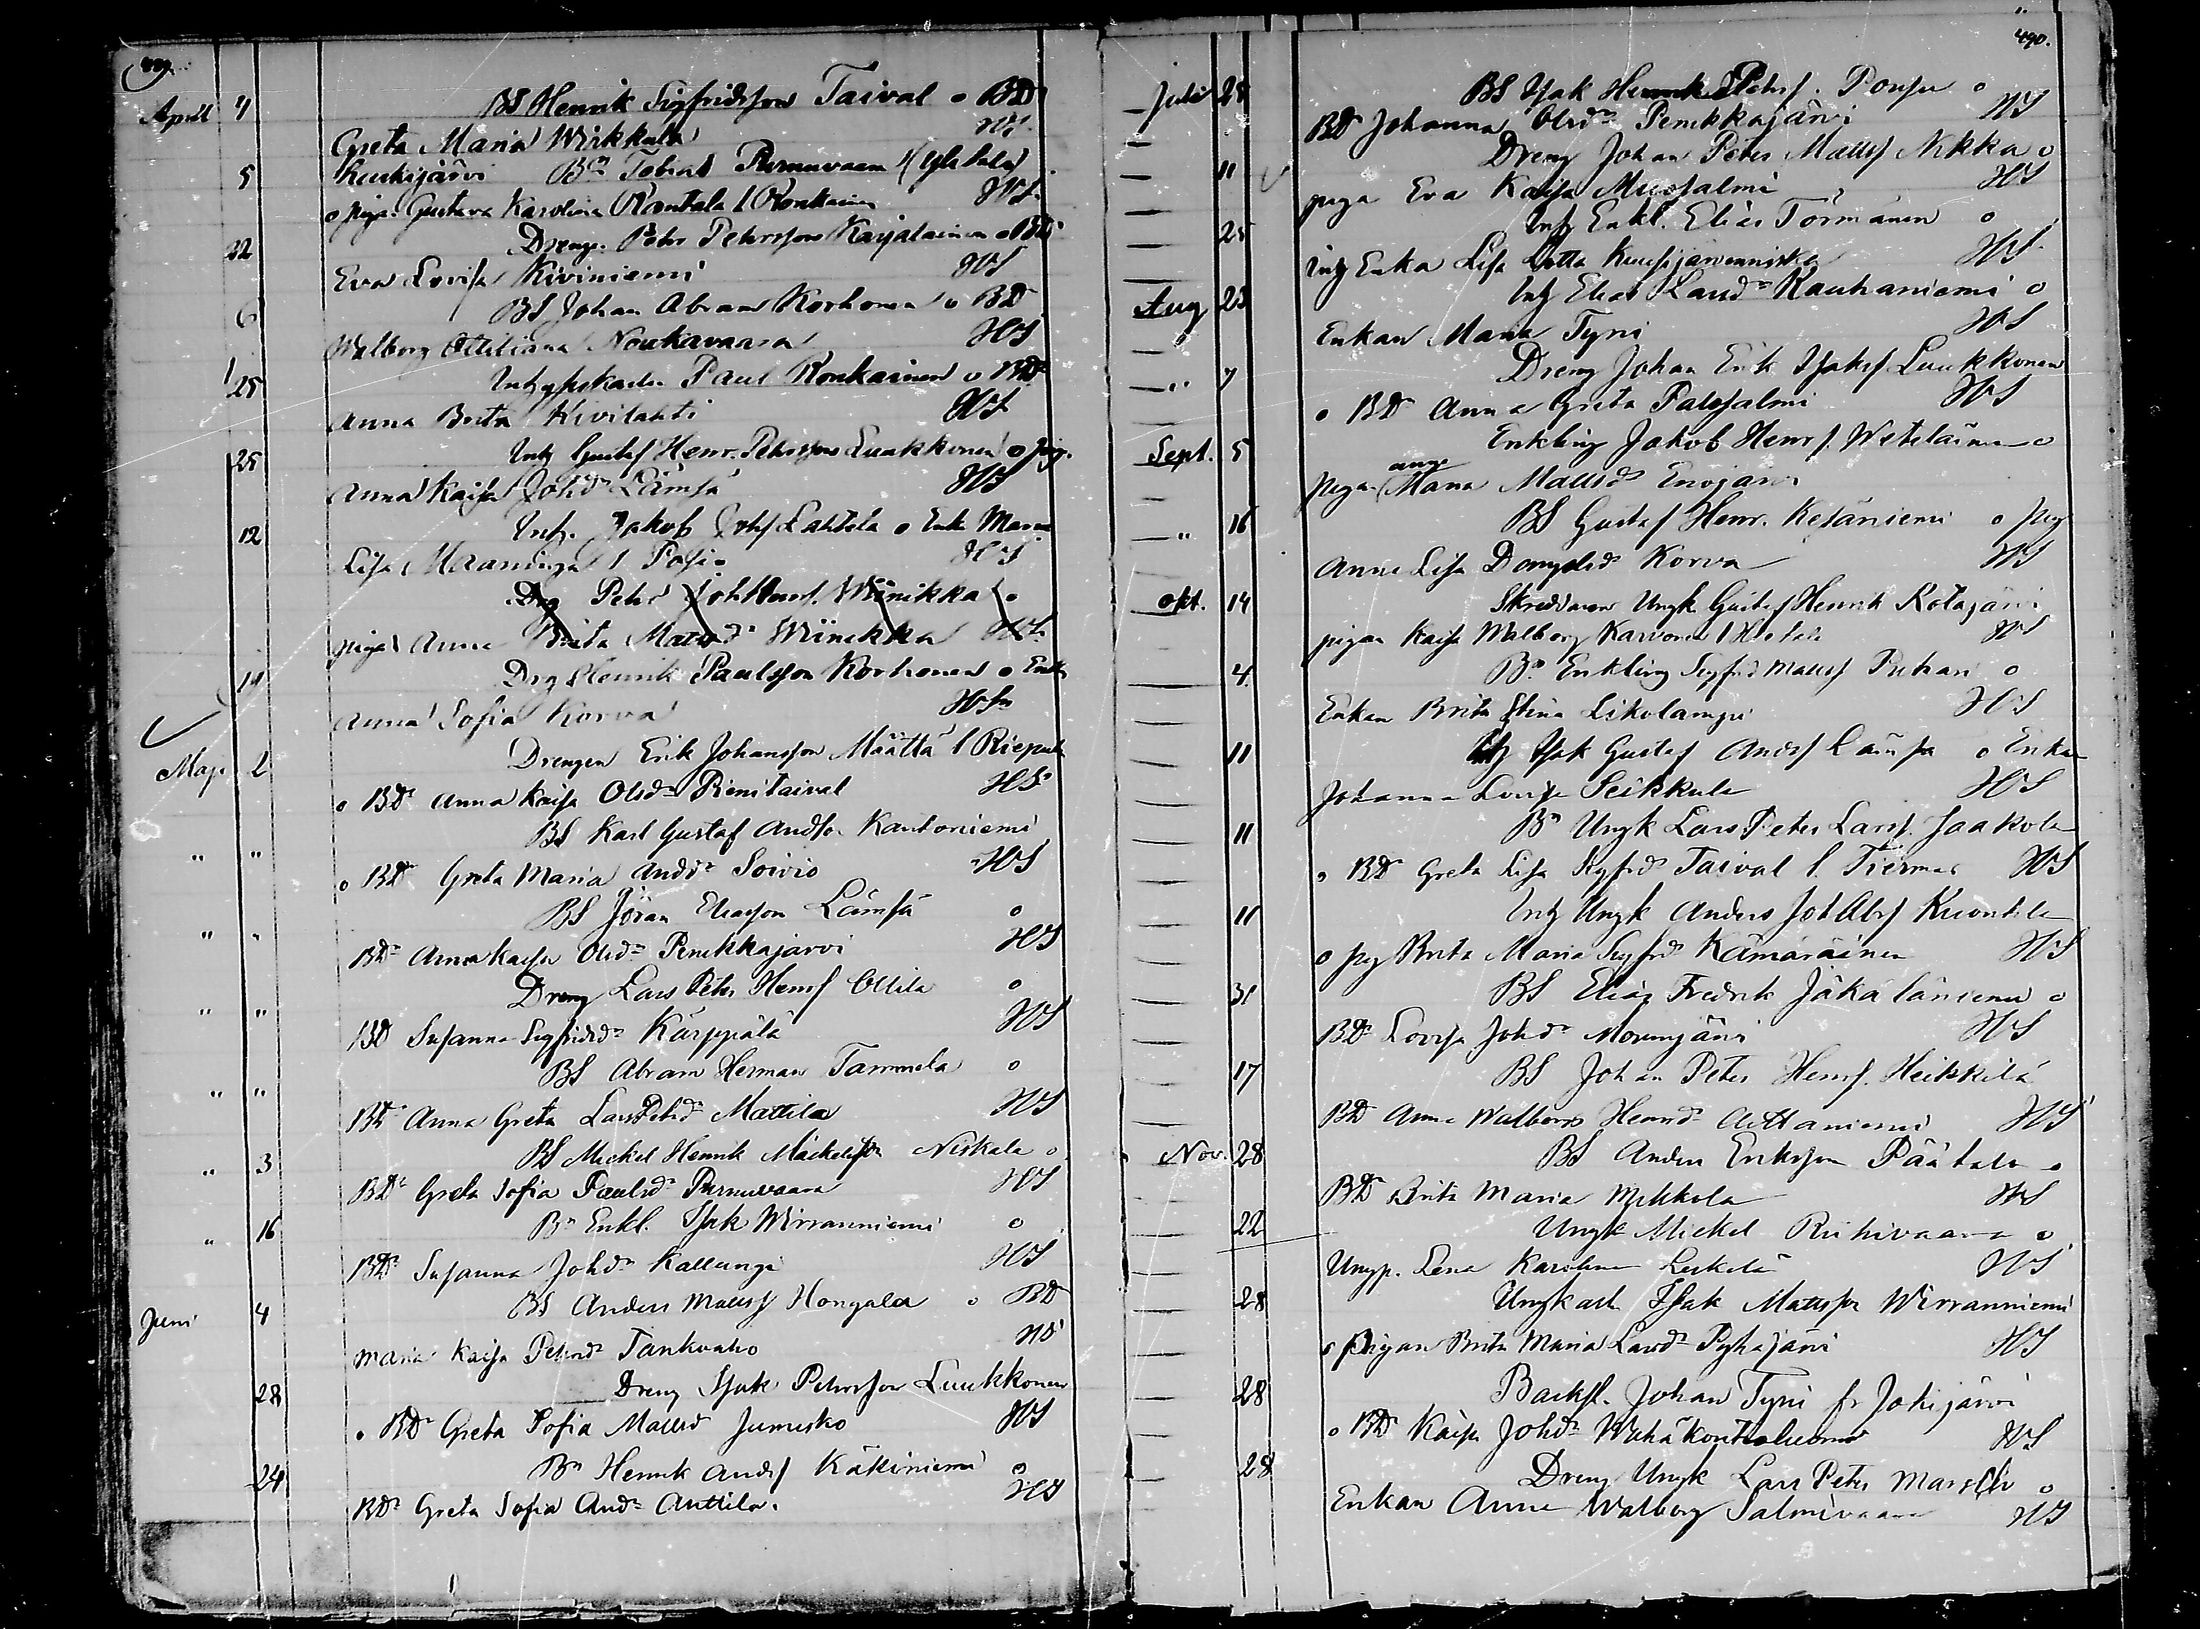 489.
April 4 BS Henrik Sigfridsson Taival o BDr
Greta Maria Wirkkula HS.
5 Kuukijärvi Bn Tobias Purnuvaara (Ylitalo)
o pigan Gustava Karolina Rantala l Ronkainen HS.
22 Drengen Petter Petersson Karjalainen o BDr
Eva Lovisa Kiviniemi HS
6 BS Johan Abram Korhonen o BDr
Walborg Ottiliana Noukavaara HS
25 Inhyseskarlen Paul Ronkainen o BDr
Anna Brita Kivilahti HS
25 Inh Gustaf Henr. Petersson Luukkonen o pig.
Anna Kaisa Johdr Lämsä HS
12 Inh. Jakob Johsf Lahtela o Enk Maria
Lisa Maaninga l Posio HS
Drg Petr Joh Henrsf. Wänikkä o
pigan Anna Brita Matsdr Wänikkä HS
19 Drg Henrik Paulsson Korhonen o Enk
Anna Sofia Korva HS
Maji 2 Drengen Erik Johansson Määttä l Riepula
o BDr Anna Kaisa Olsdr Pienitaival HS
" " BS Karl Gustaf Andsson Kantoniemi
o BDr Greta Maria Andsdr Soivio HS
" " BS Jöran Eliasson Lämsä o
BDr Anna Kaisa Olsdr Penikkajärvi HS
" " Dreng Lars Peter Henrsf Ollila o
BD Susanna Sigfridsdr Kärppälä HS
" " BS Abram Herman Tammela o
BDr Anna Greta Lars Petersdr Mattila HS
" 3 BS Mickel Henrik Mickelsson Niskala o
BDr Greta Sofia Paulsdr Purnuvaara HS
" 16 Bn Enkl. Isak Wirranniemi o
BDr Susanna Johdr Kallunge HS
Juni 4 BS Anders Mattsf Hongala o BD
Maria Kaisa Petersdr Tankuaho HS
28 Dreng Isak Petersson Luukkonen
o BDr Greta Sofia Mattsdr Jumisko HS
24 Bn Henrik Andsf Käkiniemi o
BDr Greta Sofia Andsdr Anttila. HS
490.
Juli 28 BS Isak Henrik Petersf. Pousu o
BDr Johanna Olsdr Penikkajärvi HS
11 Dreng Johan Peter Mattsf Nikka o
piga Eva Kaisa Mursalmi HS
25 Inh Enkl. Elias Törmänen o
Inh Enka Lisa Lotta Kuusijärvenniska HS
Aug 23 Inh Elias Larsdr Rauhaniemi o
Enkan Maria Tyni HS
" 7 Dreng Johan Erik Isaksf Luukkonen
o BDr Anna Greta Palosalmi HS
Sept. 5 Enkling Jakob Henrsf. Wetelainen o
piga Maria Mattsdr Enojärvi
" 16 BS Gustaf Henr. Kesäniemi o pig
Anna Lisa Danielsdr Korva HS
Okt. 14 Skreddaren Ungk Gustaf Henrik Rotajärvi
pigan Kaisa Walborg Karvonen l HS
4. Bn Enkling Sigfrid Mattsf Puhari o
Enkan Brita Stina Likolampi HS
11 Inh Isak Gustaf Andsf Lämsä o Enkan
Johanna Lovisa Seikkula HS
11 Bn Ungk Lars Peter Larsf. Jaakola
o BDr Greta Lisa Sigfrdr Taival l. Tiermas HS
11 Inh Ungk Anders Joh Absf Kuontila
o pig Brita Maria Sigfrdr Kämäräinen HS
31 BS Elias Fredrik Jäkäläniemi o
BDr Lovisa Johdr Mourujärvi HS
17 BS Johan Peter Henrsf. Heikkilä
BD Anna Walborg Henrsdr Aittaniemi HS
Nov. 28 BS Anders Eriksson Päätalo o
BDr Brita Maria Mikkola HS
22 Ungk Mickel Riihivaara o
Ungp. Lena Karolina Leskelä HS
28 Ungkarl Isak Mattsson Wirranniemi
o Pigan Brita Maria Larsdr Pyhäjärvi HS
28 Backst. Johan Tyni fr Jokijärvi
o BDr Kaisa Johdr Wähäkontioluoma HS
28 Dreng Ungk Lars Peter o
Enkan Anna Walborg Salmivaara HS